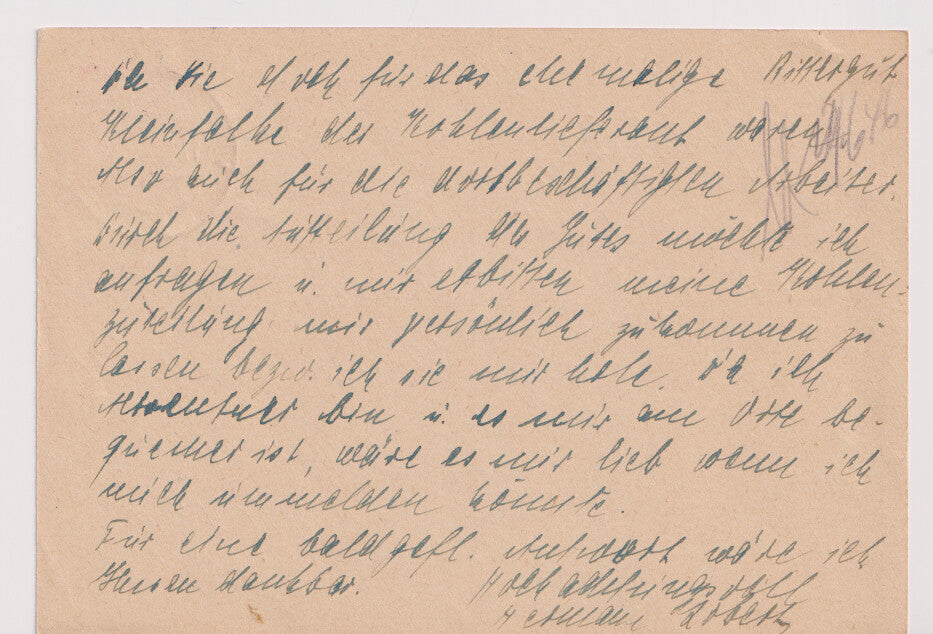 Da Sie doch für das ehemalige Rittergut
Kleinfalke der Kohlenlieferant waren
Also auch für die dortbeschäftigten Arbeiter.
Durch die Aufteilung des Gutes möchte ich
anfragen u. mir erbitten meine Kohlen-
zuteilung mir persönlich zukommen zu
lassen bezw. ich sie mir hole. Da ich
bin u. es mir am Orte be-
quemer ist, wäre es mir lieb wenn ich
mich ummelden könnte.
Für eine bald gefl. Antwort wäre ich
Ihnen dankbar. Hochachtungsvoll
Hermann